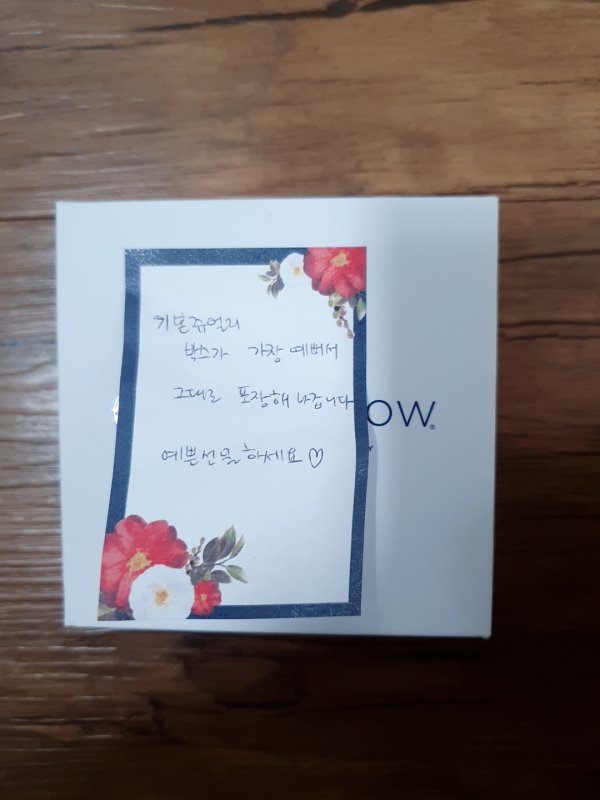 키본쥬얼리
박스가 가장 예뻐서
그대로 포장해 나갑니다
OW
예쁜선물하세요♡